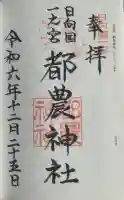 奉拝
日向国
一之宮
都農神社
令和六年十二月二十五日